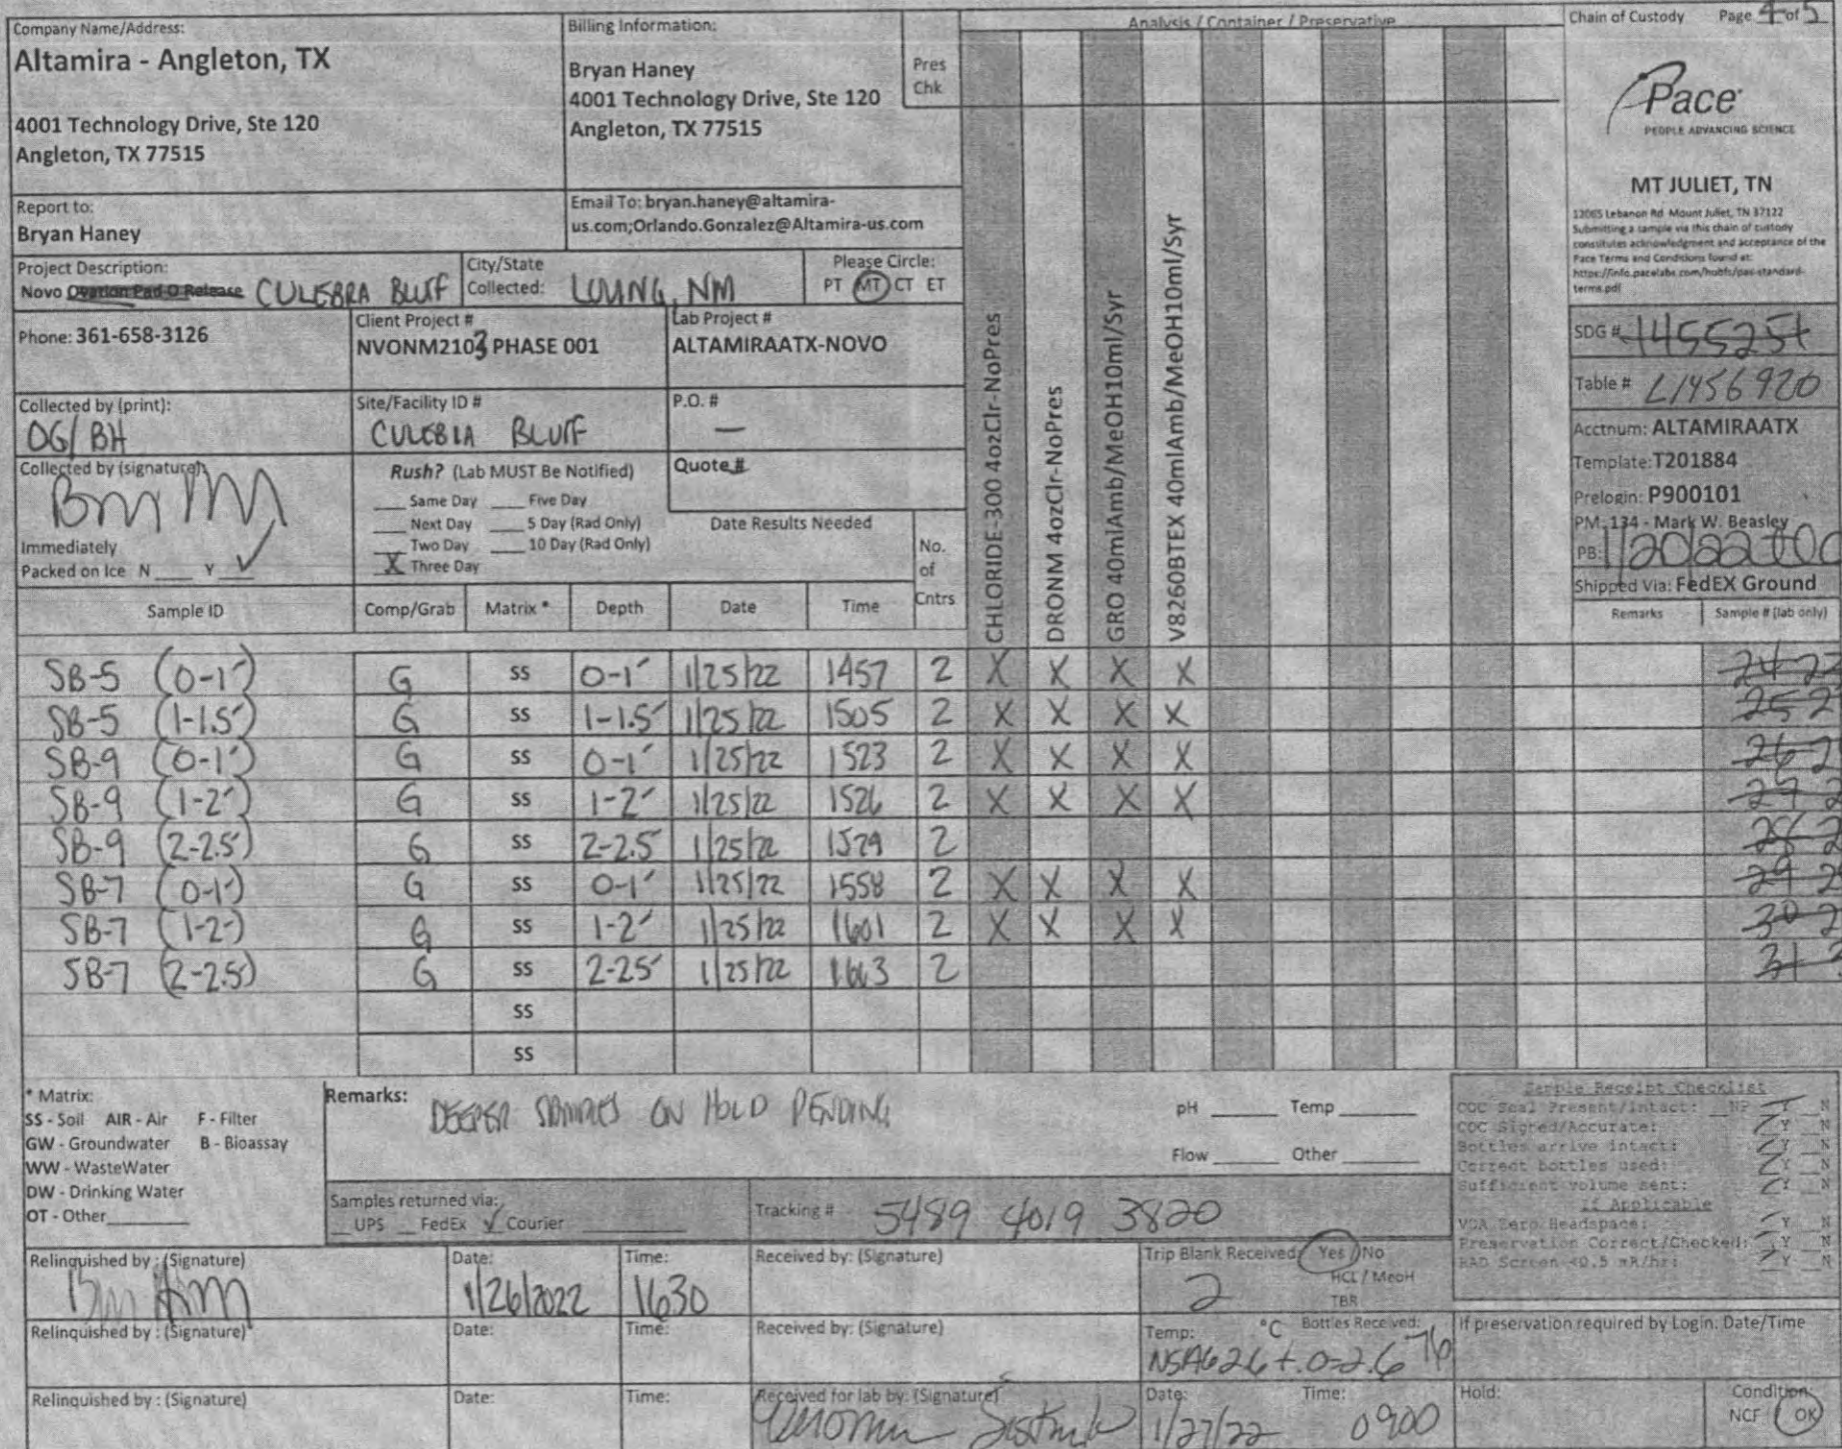 Company Name/Address:
Altamira - Angleton, TX
4001 Technology Drive, Ste 120
Angleton, TX 77515
Billing Information:
Bryan Haney
4001 Technology Drive, Ste 120
Angleton, TX 77515
Pres
Chk
Analysis / Container / Preservative
Chain of Custody Page 4 of 5
Pace
PEOPLE ADVANCING SCIENCE
MT JULIET, TN
12065 Lebanon Rd Mount Juliet, TN 37122
Submitting a sample via this chain of custody
constitutes acknowledgment and acceptance of the
Pace Terms and Conditions found at:
https://info.pacelabs.com/hubfs/pas-standard-
terms.pdf
Report to:
Bryan Haney
Email To: bryan.haney@altamira-
us.com;Orlando.Gonzalez@Altamira-us.com
Project Description:
Novo Ovation Pad O Release CULEBRA BLUFF
City/State
Collected: LOVING, NM
Please Circle:
PT MT CT ET
Phone: 361-658-3126
Client Project #
NVONM2103 PHASE 001
Lab Project #
ALTAMIRAATX-NOVO
Collected by (print):
OG/BH
Site/Facility ID #
CULEBRA BLUFF
P.O. #
—
Collected by (signature):
Immediately
Packed on Ice N ___ Y ✓
Rush? (Lab MUST Be Notified)
___ Same Day ___ Five Day
___ Next Day ___ 5 Day (Rad Only)
___ Two Day ___ 10 Day (Rad Only)
X Three Day
Quote #
Date Results Needed
No.
of
Cntrs
CHLORIDE-300 4ozClr-NoPres
DRONM 4ozClr-NoPres
GRO 40mlAmb/MeOH10ml/Syr
V8260BTEX 40mlAmb/MeOH10ml/Syr
SDG #
Table # L1456920
Acctnum: ALTAMIRAATX
Template: T201884
Prelogin: P900101
PM: 134 - Mark W. Beasley
PB:
Shipped Via: FedEX Ground
Remarks Sample # (lab only)
Sample ID Comp/Grab Matrix * Depth Date Time
SB-5 (0-1') G SS 0-1' 1/25/22 1457 2 X X X X
SB-5 (1-1.5') G SS 1-1.5' 1/25/22 1505 2 X X X X
SB-9 (0-1') G SS 0-1' 1/25/22 1523 2 X X X X
SB-9 (1-2') G SS 1-2' 1/25/22 1526 2 X X X X
SB-9 (2-2.5') G SS 2-2.5' 1/25/22 1529 2
SB-7 (0-1') G SS 0-1' 1/25/22 1558 2 X X X X
SB-7 (1-2') G SS 1-2' 1/25/22 1601 2 X X X X
SB-7 (2-2.5') G SS 2-2.5' 1/25/22 2
SS
SS
* Matrix:
SS - Soil AIR - Air F - Filter
GW - Groundwater B - Bioassay
WW - WasteWater
DW - Drinking Water
OT - Other
Remarks: DEEPER SAMPLES ON HOLD PENDING
pH ___ Temp ___
Flow ___ Other ___
Samples returned via:
__ UPS __ FedEx ✓ Courier
Tracking # 5489 4019 3820
Sample Receipt Checklist
COC Seal Present/Intact: __NP Y N
COC Signed/Accurate: Y N
Bottles arrive intact: Y N
Correct bottles used: Y N
Sufficient volume sent: Y N
If Applicable
VOA Zero Headspace: Y N
Preservation Correct/Checked: Y N
RAD Screen <0.5 mR/hr: Y N
Relinquished by : (Signature)
Date:
1/26/2022
Time:
1630
Received by: (Signature)
Trip Blank Received: Yes / No
2
HCL / MeoH
TBR
Relinquished by : (Signature)
Date:
Time:
Received by: (Signature)
Temp: °C Bottles Received:
NSA6 2.6+.0=2.6 76
If preservation required by Login: Date/Time
Relinquished by : (Signature)
Date:
Time:
Received for lab by: (Signature)
Date:
1/27/22
Time:
0900
Hold:
Condition:
NCF / OK